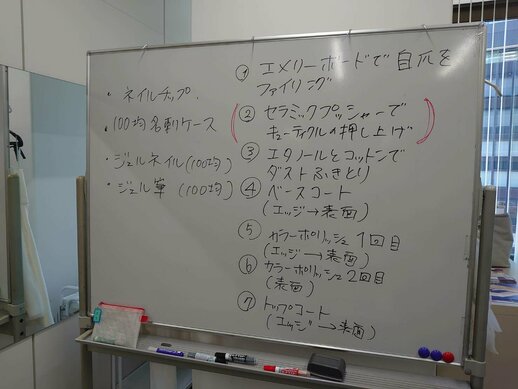 ・ネイルチップ.
・100均名刺ケース
・ジェルネイル(100均)
・ジェル筆 (100均)
① エメリーボードで自爪を
ファイリング
② セラミックプッシャーで
キューティクルの押し上げ
③ エタノールとコットンで
ダストふきとり
④ ベースコート
(エッジ→表面)
⑤ カラーポリッシュ 1回目
(エッジ→表面)
⑥ カラーポリッシュ2回目
(表面)
⑦ トップコート
(エッジ→表面)